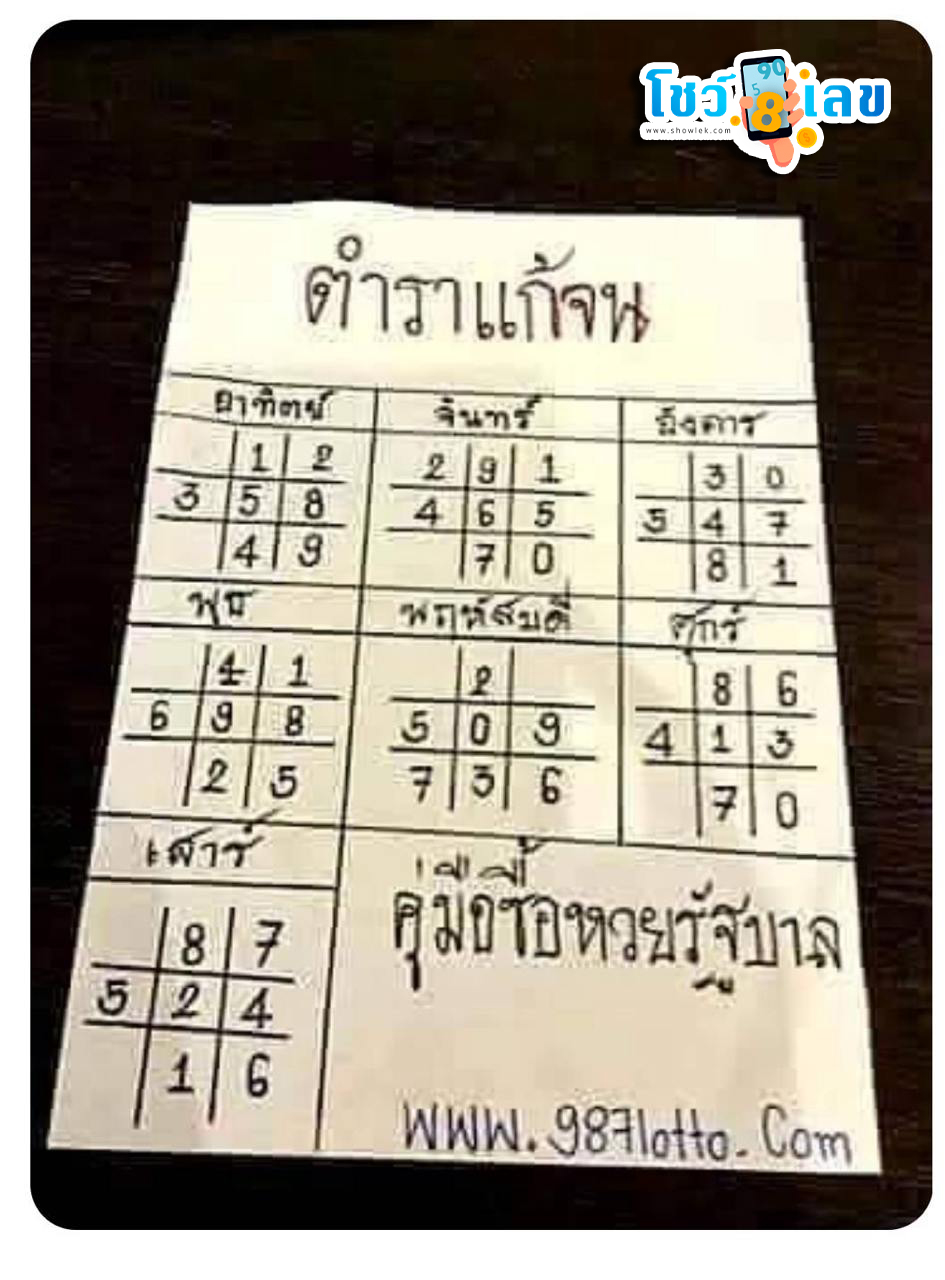 โชว์เลข
90
5
8
www.showlek.com
ตำราแก้จน
อาทิตย์ จันทร์ อังคาร
1 2 2 9 1 3 0
3 5 8 4 6 5 5 4 7
4 9 7 0 8 1
พุธ พฤหัสบดี ศุกร์
4 1 2 8 6
6 9 8 5 0 9 4 1 3
2 5 7 3 6 7 0
เสาร์
8 7
5 2 4
1 6
คู่มือซื้อหวยรัฐบาล
WWW.987lotto.Com